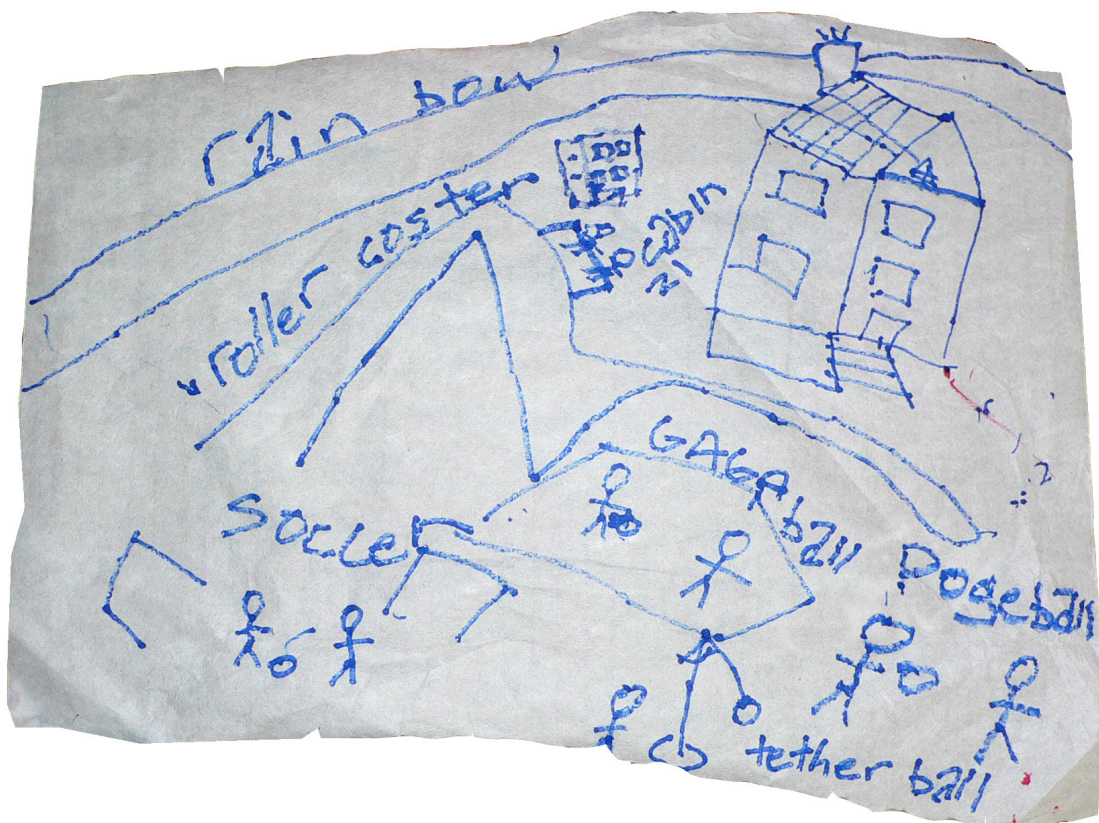 rain bow
roller coster
cabin
GAGA ball
Soccer
Dogeball
tether ball